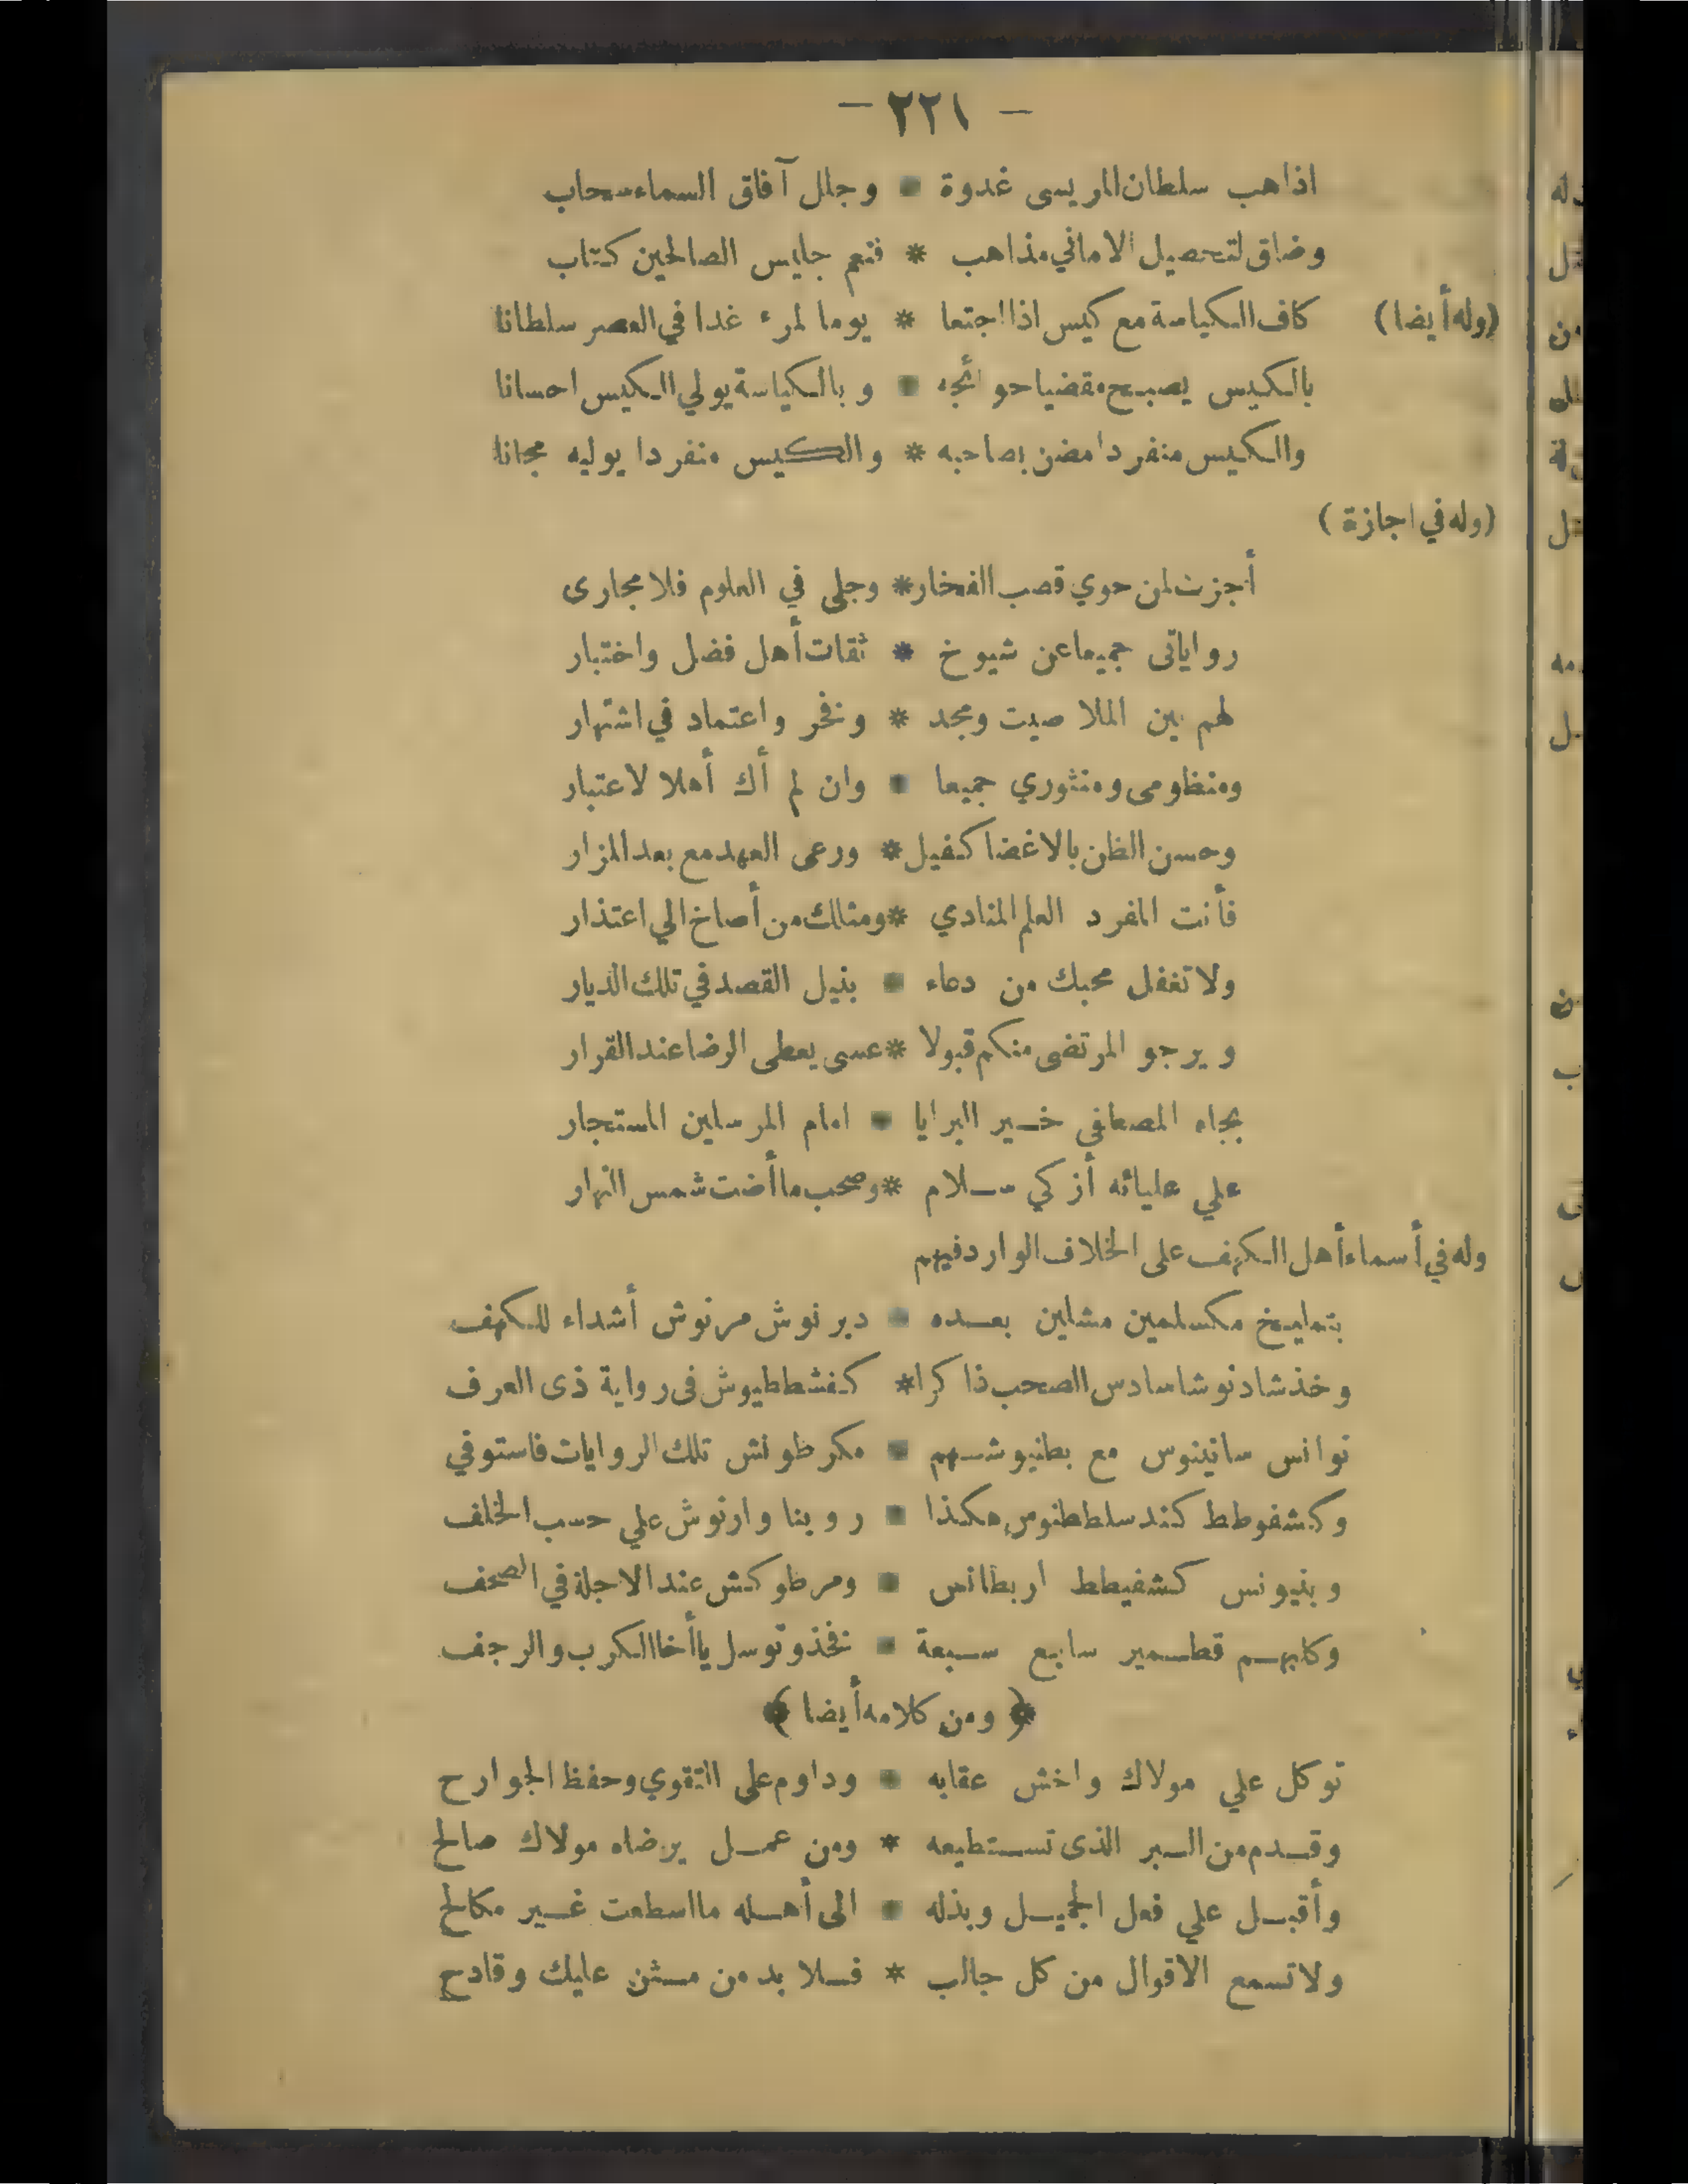 — ٢٢١ —
اذا هب سلطان المريسى غدوة * وجلل آفاق السماء سحاب
وضاق لتحصيل الاماني مذاهب * فنعم جليس الصالحين كتاب
(وله أيضا) كاف الكياسة مع كيس اذا اجتمعا * يوما لمرء غدا في العصر سلطانا
بالكيس يصبح مقضيا حوائجه * وبالكياسة يولي الكيس احسانا
والكيس منفردا مضن بصاحبه * والكيس منفردا يوليه مجانا
(وله في اجازة)
أجزت لمن حوي قصب الفخار * وجلى في العلوم فلا مجارى
رواياتى جميعا عن شيوخ * ثقات أهل فضل واختبار
لهم بين الملا صيت ومجد * وفخر واعتماد في اشتهار
ومنظومى ومنثوري جميعا * وان لم أك أهلا لاعتبار
وحسن الظن بالاغضا كفيل * ورعى العهد مع بعد المزار
فأنت المفرد العلم المنادي * ومثلك من أصاخ الي اعتذار
ولا تغفل محبك من دعاء * بنيل القصد في تلك الديار
ويرجو المرتضى منكم قبولا * عسى يعطى الرضا عند القرار
بجاه المصطفي خير البرايا * امام المرسلين المستجار
علي عليائه أزكي سلام * وصحب ما أضت شمس النهار
وله في أسماء أهل الكهف على الخلاف الوارد فيهم
بتمليخ مكسلمين مشلين بعده * دبرنوش مرنوش أشداء للكهف
وخذ شاد نوشا سادس الصحب ذاكرا * كفشططيوش فى رواية ذى العرف
نوانس سانينوس مع بطنيوشهم * مكرطونش تلك الروايات فاستوفي
وكشفوطط كندسلططنوس هكذا * روينا وارنوش علي حسب الخلف
وبنيونس كشفيطط اربطانس * ومرطوكش عند الاجلة في الصحف
وكلبهم قطمير سابع سبعة * فخذ وتوسل يا أخا الكرب والرجف
﴿ ومن كلامه أيضا ﴾
توكل علي مولاك واخش عقابه * وداوم على التقوي وحفظ الجوارح
وقدم من البر الذى تستطيعه * ومن عمل يرضاه مولاك صالح
وأقبل علي فعل الجميل وبذله * الى أهله ما اسطعت غير مكالح
ولا تسمع الاقوال من كل جالب * فلا بد من مثن عليك وقادح